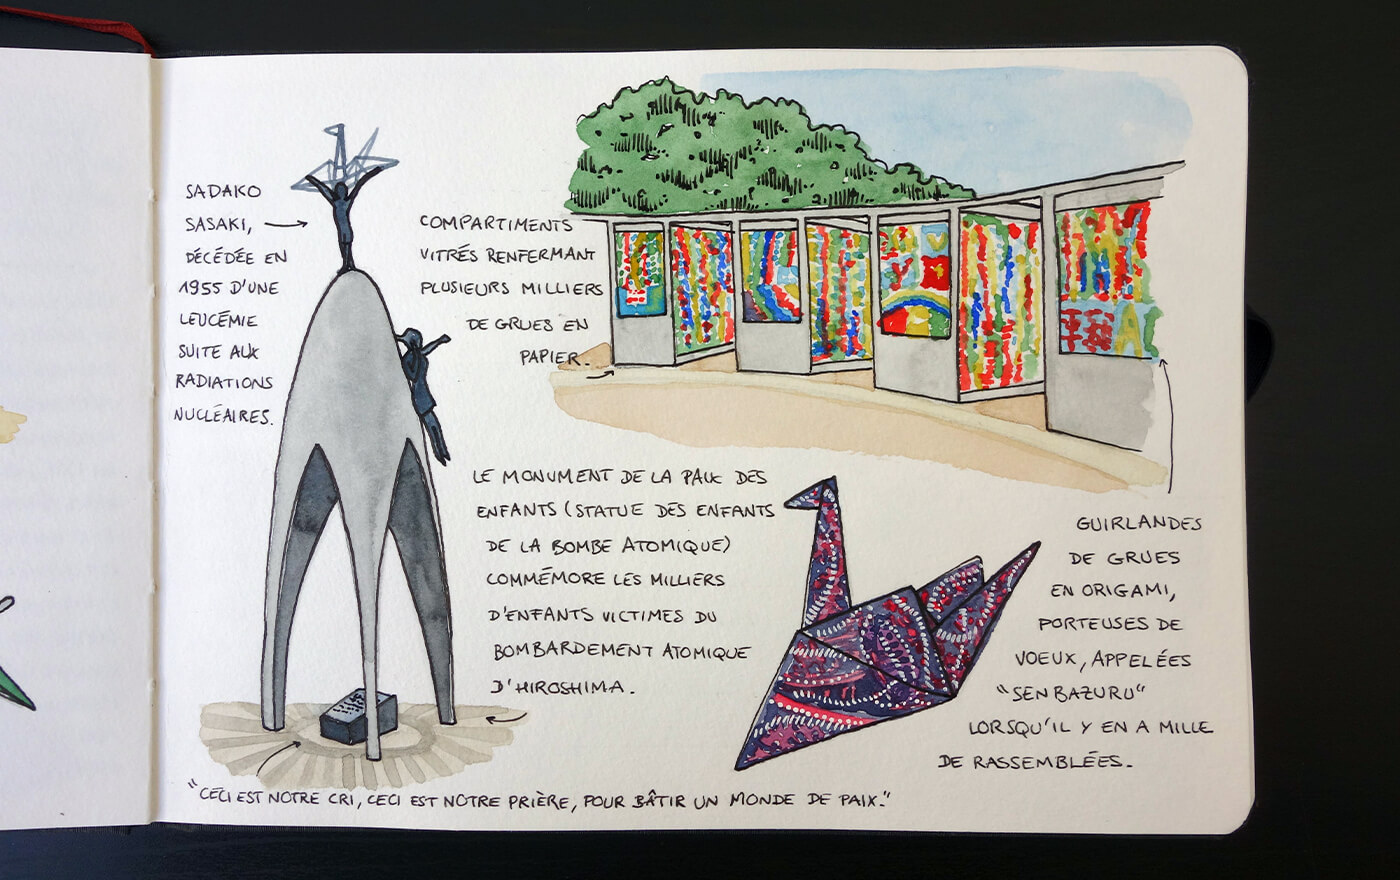 SADAKO
SASAKI,
DÉCÉDÉE EN
1955 D'UNE
LEUCÉMIE
SUITE AUX
RADIATIONS
NUCLÉAIRES.
COMPARTIMENTS
VITRÉS RENFERMANT
PLUSIEURS MILLIERS
DE GRUES EN
PAPIER.
LE MONUMENT DE LA PAIX DES
ENFANTS (STATUE DES ENFANTS
DE LA BOMBE ATOMIQUE)
COMMÉMORE LES MILLIERS
D'ENFANTS VICTIMES DU
BOMBARDEMENT ATOMIQUE
D'HIROSHIMA.
GUIRLANDES
DE GRUES
EN ORIGAMI,
PORTEUSES DE
VOEUX, APPELÉES
"SENBAZURU"
LORSQU'IL Y EN A MILLE
DE RASSEMBLÉES.
"CECI EST NOTRE CRI, CECI EST NOTRE PRIÈRE, POUR BÂTIR UN MONDE DE PAIX."